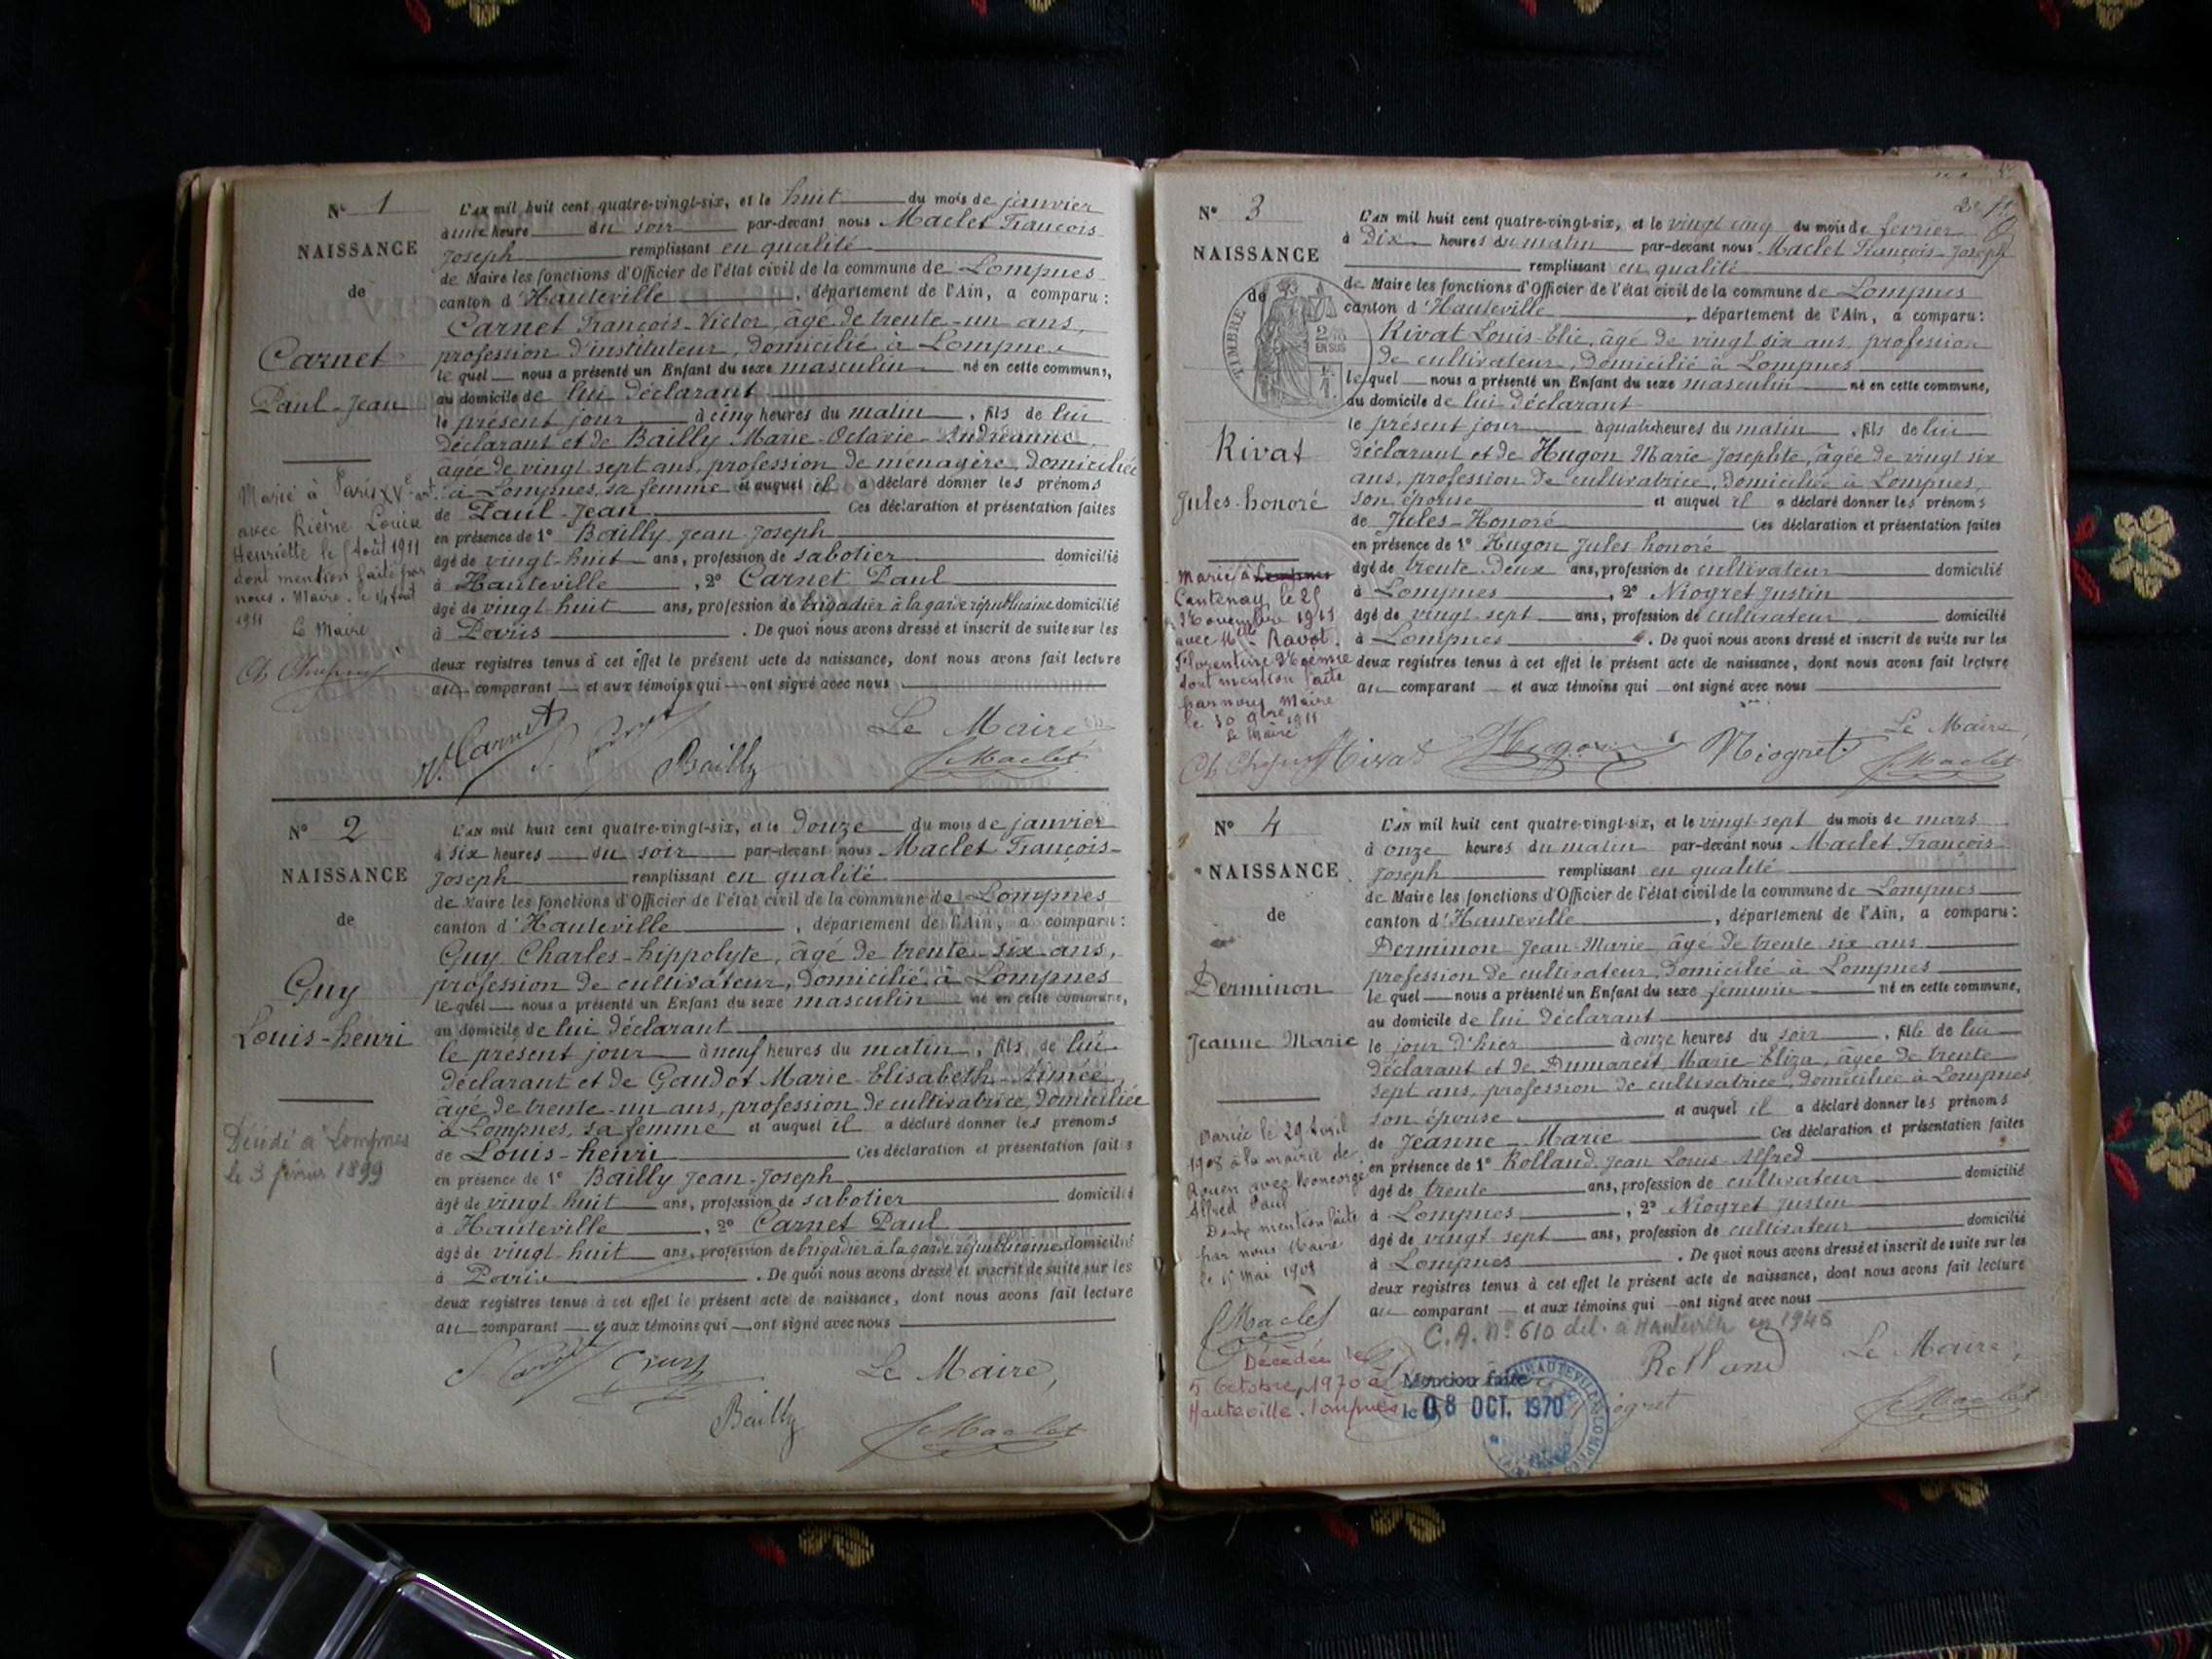 N° 1
NAISSANCE
de
Carnet
Paul-Jean
Marié à Paris XVe art
avec Rième Louise
Henriette le Août 1911
dont mention faite par
nous, Maire, le 14 Août
1911
Le Maire
L'an mil huit cent quatre-vingt-six, et le huit du mois de janvier
à une heure du soir par-devant nous Maclet François-
Joseph remplissant en qualité
de Maire les fonctions d'Officier de l'état civil de la commune de Lompnes
canton d'Hauteville, département de l'Ain, a comparu:
Carnet François-Victor, âgé de trente-un ans,
profession d'instituteur, domicilié à Lompnes
le quel nous a présenté un Enfant du sexe masculin né en cette commune,
au domicile de lui déclarant
le présent jour à cinq heures du matin, fils de lui
déclarant et de Bailly Marie-Octavie-Andréanne
âgée de vingt sept ans, profession de ménagère, domiciliée
à Lompnes, sa femme et auquel il a déclaré donner les prénoms
de Paul-Jean Ces déclaration et présentation faites
en présence de 1° Bailly Jean Joseph
âgé de vingt-huit ans, profession de sabotier domicilié
à Hauteville, 2° Carnet Paul
âgé de vingt-huit ans, profession de brigadier à la garde républicaine domicilié
à Paris. De quoi nous avons dressé et inscrit de suite sur les
deux registres tenus à cet effet le présent acte de naissance, dont nous avons fait lecture
au comparant et aux témoins qui ont signé avec nous
Le Maire
V. Carnet Bailly Maclet
N° 2
NAISSANCE
de
Guy
Louis-henri
Décédé à Lompnes
le 3 février 1899
L'an mil huit cent quatre-vingt-six, et le douze du mois de janvier
à six heures du soir par-devant nous Maclet François-
Joseph remplissant en qualité
de Maire les fonctions d'Officier de l'état civil de la commune de Lompnes
canton d'Hauteville, département de l'Ain, a comparu:
Guy Charles-hippolyte, âgé de trente-six ans,
profession de cultivateur, domicilié à Lompnes
le quel nous a présenté un Enfant du sexe masculin né en cette commune,
au domicile de lui déclarant
le présent jour à neuf heures du matin, fils de lui
déclarant et de Gaudot Marie-Elisabeth-Aimée
âgé de trente-un ans, profession de cultivatrice, domiciliée
à Lompnes, sa femme et auquel il a déclaré donner les prénoms
de Louis-henri Ces déclaration et présentation faites
en présence de 1° Bailly Jean-Joseph
âgé de vingt huit ans, profession de sabotier domicilié
à Hauteville, 2° Carnet Paul
âgé de vingt-huit ans, profession de brigadier à la garde républicaine domicilié
à Paris. De quoi nous avons dressé et inscrit de suite sur les
deux registres tenus à cet effet le présent acte de naissance, dont nous avons fait lecture
au comparant et aux témoins qui ont signé avec nous
Guy Le Maire,
Bailly Maclet
N° 3
NAISSANCE
de
TIMBRE
EN SUS
Rivat
Jules-honoré
Marié à Lompnes
Cantenay, le 25
Novembre 1911
avec Mlle Ravot
Florentine Noémie
dont mention faite
par nous, Maire
le 30 9bre 1911
Le Maire
L'an mil huit cent quatre-vingt-six, et le vingt cinq du mois de février
à Dix heures du matin par-devant nous Maclet François-Joseph
remplissant en qualité
de Maire les fonctions d'Officier de l'état civil de la commune de Lompnes
canton d'Hauteville, département de l'Ain, a comparu:
Rivat Louis-Elie, âgé de vingt six ans, profession
de cultivateur, domicilié à Lompnes
le quel nous a présenté un Enfant du sexe masculin né en cette commune,
au domicile de lui déclarant
le présent jour à quatre heures du matin, fils de lui
déclarant et de Hugon Marie Josephte, âgée de vingt six
ans, profession de cultivatrice, domiciliée à Lompnes,
son épouse et auquel il a déclaré donner les prénoms
de Jules-Honoré Ces déclaration et présentation faites
en présence de 1° Hugon Jules honoré
âgé de trente deux ans, profession de cultivateur domicilié
à Lompnes, 2° Niogret Justin
âgé de vingt sept ans, profession de cultivateur domicilié
à Lompnes. De quoi nous avons dressé et inscrit de suite sur les
deux registres tenus à cet effet le présent acte de naissance, dont nous avons fait lecture
au comparant et aux témoins qui ont signé avec nous
Le Maire,
Rivat Hugon Niogret Maclet
N° 4
NAISSANCE
de
Derminon
Jeanne Marie
Mariée le 29 Avril
1908 à la mairie de
Rouen avec
Alfred Paul
Dont mention faite
par nous Maire
le 15 Mai 1908
Maclet
Décédée le
5 Octobre 1970 à
Hauteville-Lompnes
L'an mil huit cent quatre-vingt-six, et le vingt sept du mois de mars
à onze heures du matin par-devant nous Maclet François-
Joseph remplissant en qualité
de Maire les fonctions d'Officier de l'état civil de la commune de Lompnes
canton d'Hauteville, département de l'Ain, a comparu:
Derminon Jean-Marie âgé de trente six ans
profession de cultivateur, domicilié à Lompnes
le quel nous a présenté un Enfant du sexe féminin né en cette commune,
au domicile de lui déclarant
le jour d'hier à onze heures du soir, fille de lui
déclarant et de Dumarest Marie-Eliza, âgée de trente
sept ans, profession de cultivatrice, domiciliée à Lompnes,
son épouse et auquel il a déclaré donner les prénoms
de Jeanne-Marie Ces déclaration et présentation faites
en présence de 1° Rolland Jean Louis Alfred
âgé de trente ans, profession de cultivateur domicilié
à Lompnes, 2° Niogret Justin
âgé de vingt sept ans, profession de cultivateur domicilié
à Lompnes. De quoi nous avons dressé et inscrit de suite sur les
deux registres tenus à cet effet le présent acte de naissance, dont nous avons fait lecture
au comparant et aux témoins qui ont signé avec nous
C.A. N° 610 dél. à Hauteville en 1946
Rolland Le Maire,
Mention faite
le 08 OCT. 1970
Niogret Maclet